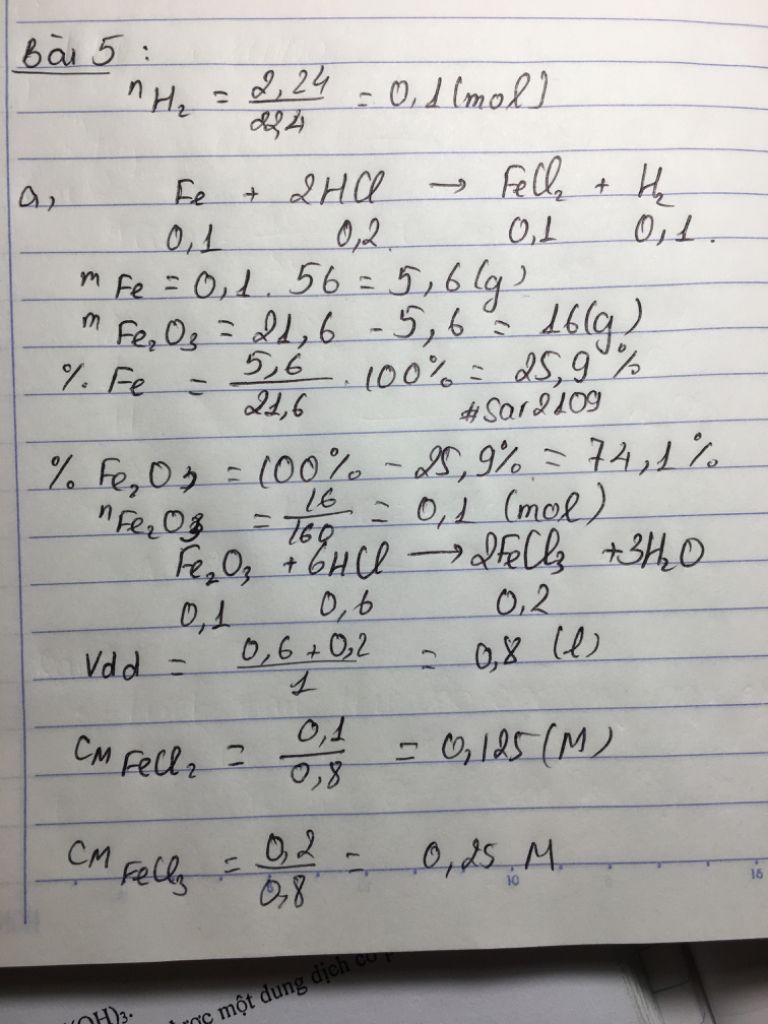 Bài 5 :
nH₂ = 2,24/22,4 = 0,1 (mol)
a, Fe + 2HCl → FeCl₂ + H₂
0,1 0,2 0,1 0,1.
mFe = 0,1. 56 = 5,6 (g)
mFe₂O₃ = 21,6 - 5,6 = 16(g)
%. Fe = 5,6/21,6 . 100% = 25,9%
#Sar2109
% Fe₂O₃ = 100% - 25,9% = 74,1%
nFe₂O₃ = 16/160 = 0,1 (mol)
Fe₂O₃ + 6HCl → 2FeCl₃ + 3H₂O
0,1 0,6 0,2
Vdd = (0,6 + 0,2)/1 = 0,8 (l)
CM FeCl₂ = 0,1/0,8 = 0,125 (M)
CM FeCl₃ = 0,2/0,8 = 0,25 M
10 15
(OH)₃.
được một dung dịch có